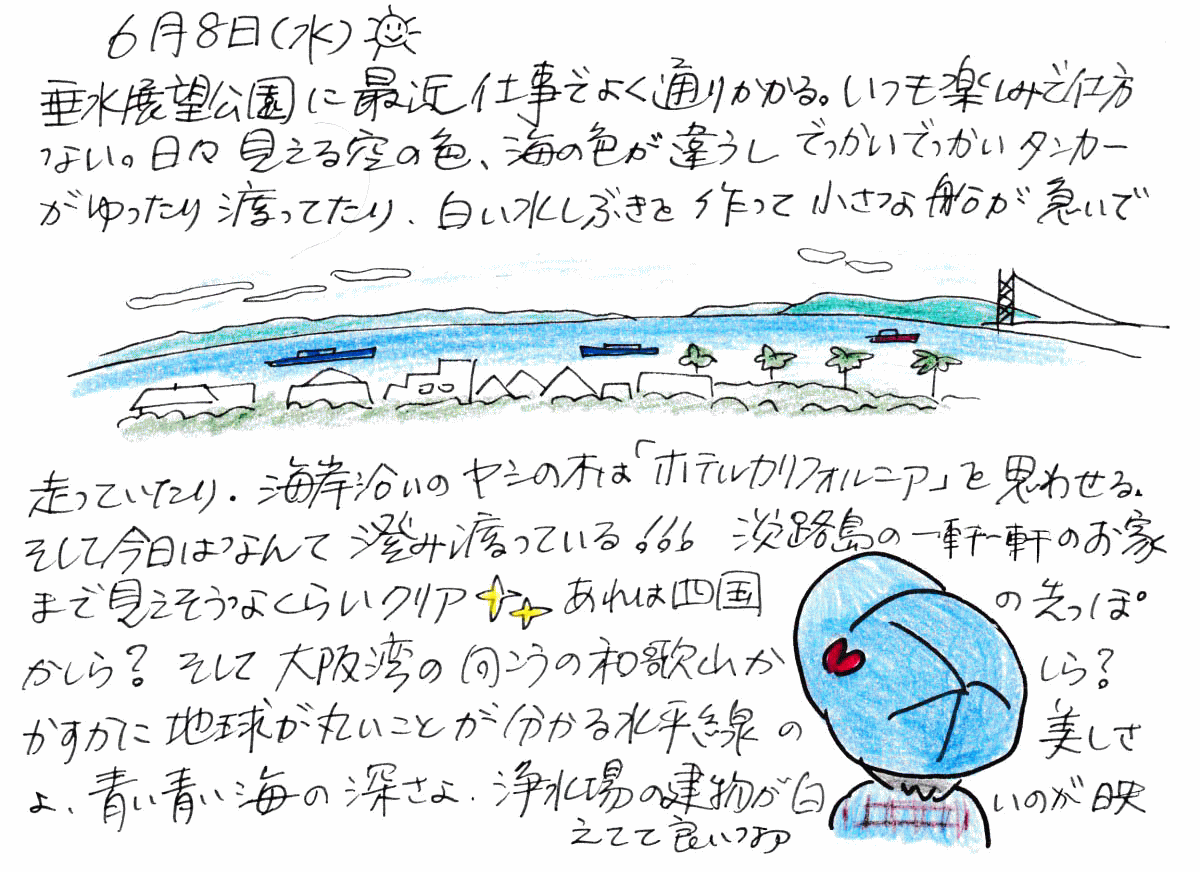 6月8日(水)
垂水展望公園に最近仕事でよく通りかかる。いつも楽しみで仕方
ない。日々見える空の色、海の色が違うしでっかいでっかいタンカー
がゆったり渡ってたり、白い水しぶきを作って小さな船が急いで
走っていたり、海岸沿いのヤシの木は「ホテルカリフォルニア」を思わせる、
そして今日はなんて澄み渡っている!!! 淡路島の一軒一軒のお家
まで見えそうなくらいクリア あれは四国の先っぽ
かしら? そして大阪湾の向こうの和歌山かしら?
かすかに地球が丸いことが分かる水平線の美しさ
よ、青い青い海の深さよ、浄水場の建物が白いのが映
えてて良いなァ